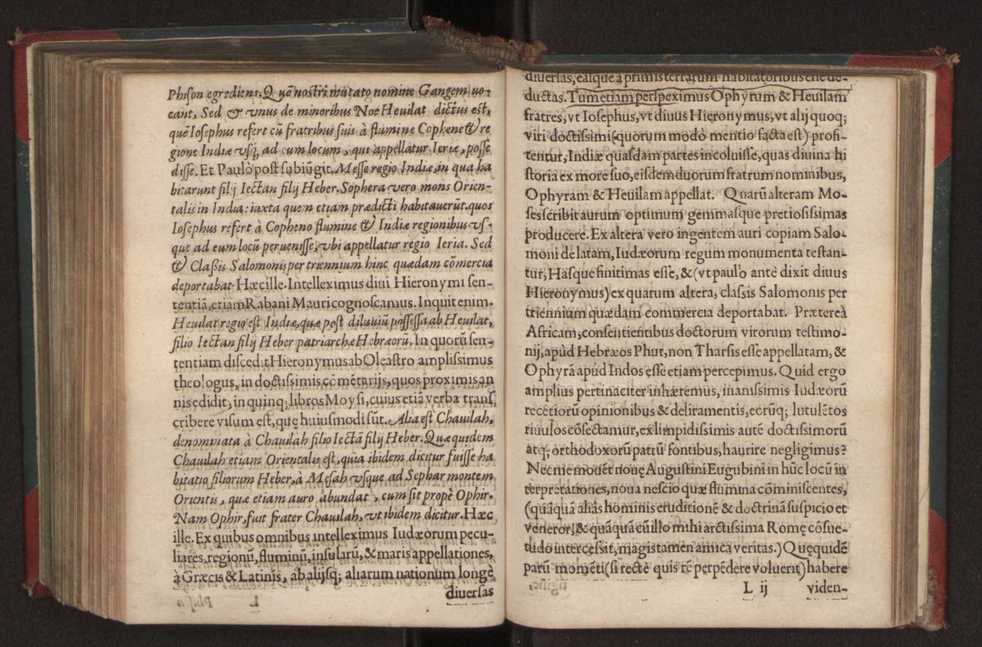 Phison egrediens. Quē nostri mutato nomine Gangem uo-
cant, Sed & vnus de minoribus Noe Heuilat dictus est,
quē Iosephus refert cū fratribus suis à flumine Cophene & re
gione Indiæ vsq; ad eum locum, qui appellatur Ieria, posse
disse. Et Paulò post subiūgit. Messe regio Indiæ, in qua ha
bitarunt filij Iectan filij Heber. Sophera vero mons Orien-
talis in India: iuxta quem etiam prædicti habitauerūt. quos
Iosephus refert à Copheno flumine & Indiæ regionibus vs-
que ad eum locū peruenisse, vbi appellatur regio Ieria. Sed
& Classis Salomonis per triennium hinc quædam cōmercia
deportabat. Hæc ille. Intelleximus diui Hieronymi sen-
tentiā, etiam Rabani Mauri cognoscamus. Inquit enim.
Heuilat regio est Indiæ, quæ post diluuiū possessa ab Heuilat,
filio Iectan filij Heber patriarchæ Hebræorū. In quorū sen-
tentiam discedit Hieronymus ab Oleastro amplissimus
theologus, in doctissimis cōmētarijs, quos proximis an
nis edidit, in quinq; libros Moysi, cuius etiā verba trans
cribere visum est, quę huiusmodi sūt. Alia est Chauilah,
denominata à Chauilah filio Iectā filij Heber. Quæ quidem
Chauilah etiam Orientalis est, quia ibidem dicitur fuisse ha
bitatio filiorum Heber, à Mesah vsque ad Sephar montem
Orientis, quæ etiam auro abundat, cum sit propè Ophir.
Nam Ophir, fuit frater Chauilah, vt ibidem dicitur. Hæc
ille. Ex quibus omnibus intelleximus Iudæorum pecu-
liares, regionū, fluminū, insularū, & maris appellationes,
à Græcis & Latinis, ab alijsq; aliarum nationum longè
diuersas
diuersas, easque à primis terrarum habitatoribus esse de-
ductas. Tum etiam perspeximus Ophyrum & Heuilam
fratres, vt Iosephus, vt diuus Hieronymus, vt alij quoq;
viri doctissimi (quorum modò mentio facta est) profi-
tentur, Indiæ quasdam partes incoluisse, quas diuina hi
storia ex more suo, eisdem duorum fratrum nominibus,
Ophyram & Heuilam appellat. Quarū alteram Mo-
ses scribit aurum optimum gemmasque pretiosissimas
producere. Ex altera vero ingentem auri copiam Salo-
moni delatam, Iudæorum regum monumenta testan-
tur, Hasque finitimas esse, & (vt paulo antè dixit diuus
Hieronymus) ex quarum altera, classis Salomonis per
triennium quædam commercia deportabat. Prætereà
Africam, consentientibus doctorum virorum testimo-
nij, apud Hebræos Phut, non Tharsis esse appellatam, &
Ophyrā apud Indos esse etiam percepimus. Quid ergo
amplius pertinaciter inhæremus, inanissimis Iudæorū
recētiorū opinionibus & deliramentis, eorūq; lutulētos
riuulos cōsectamur, ex limpidissimis autē doctissimorū
atq; orthodoxorū patrū fontibus, haurire negligimus?
Nec nie mouēt nouę Augustini Eugubini in hūc locū in
terpretationes, noua nescio quæ flumina cōminiscentes,
(quāquā aliâs hominis eruditionē & doctrinā suspicio et
veneror, & quāquā cū illo mihi arctissima Romę cōsue-
tudo intercessit, magis tamen amica veritas.) Quę quidē
parū momēti (si rectè quis rē perpēdere voluerit) habere
L ij viden-